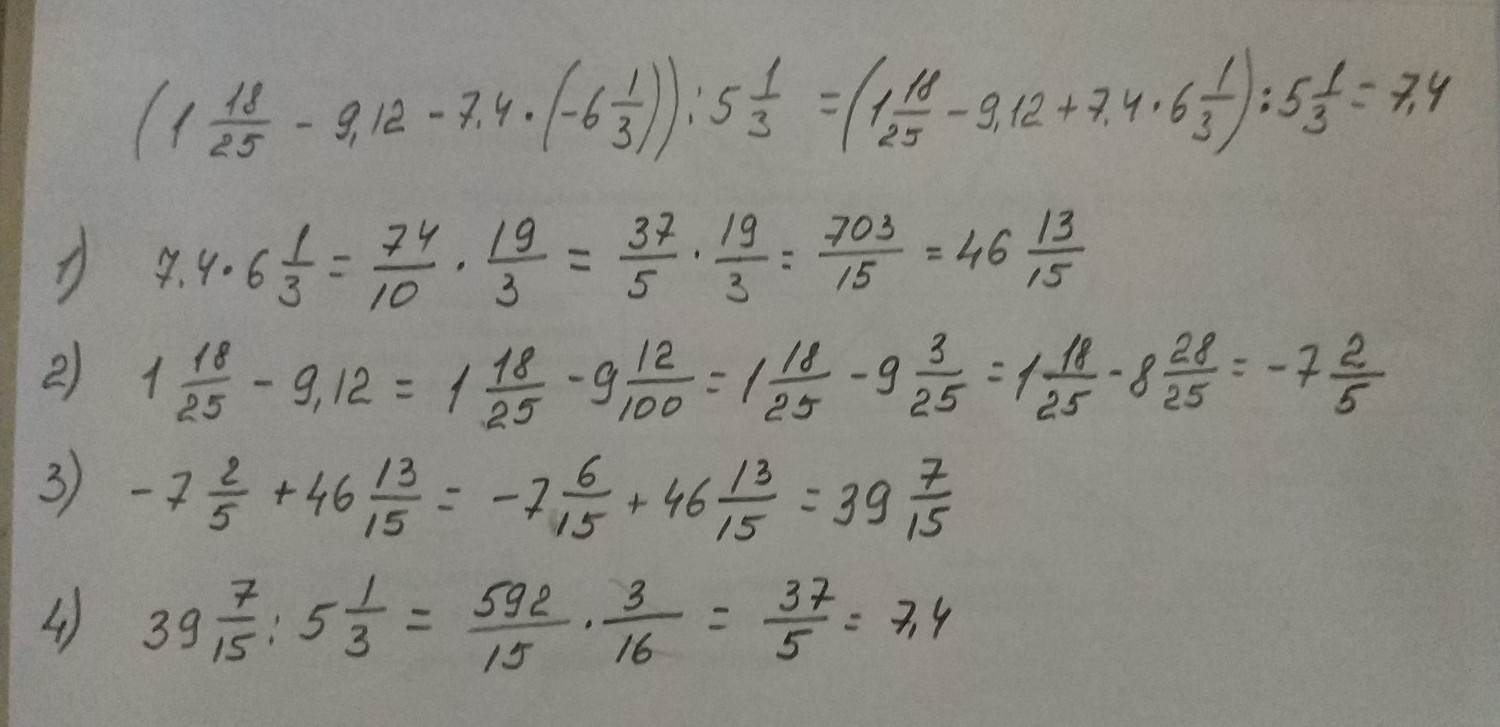 (1 18/25 - 9,12 - 7,4 · (-6 1/3)) : 5 1/3 = (1 18/25 - 9,12 + 7,4 · 6 1/3) : 5 1/3 = 7,4
1) 7,4 · 6 1/3 = 74/10 · 19/3 = 37/5 · 19/3 = 703/15 = 46 13/15
2) 1 18/25 - 9,12 = 1 18/25 - 9 12/100 = 1 18/25 - 9 3/25 = 1 18/25 - 8 28/25 = -7 2/5
3) -7 2/5 + 46 13/15 = -7 6/15 + 46 13/15 = 39 7/15
4) 39 7/15 : 5 1/3 = 592/15 · 3/16 = 37/5 = 7,4